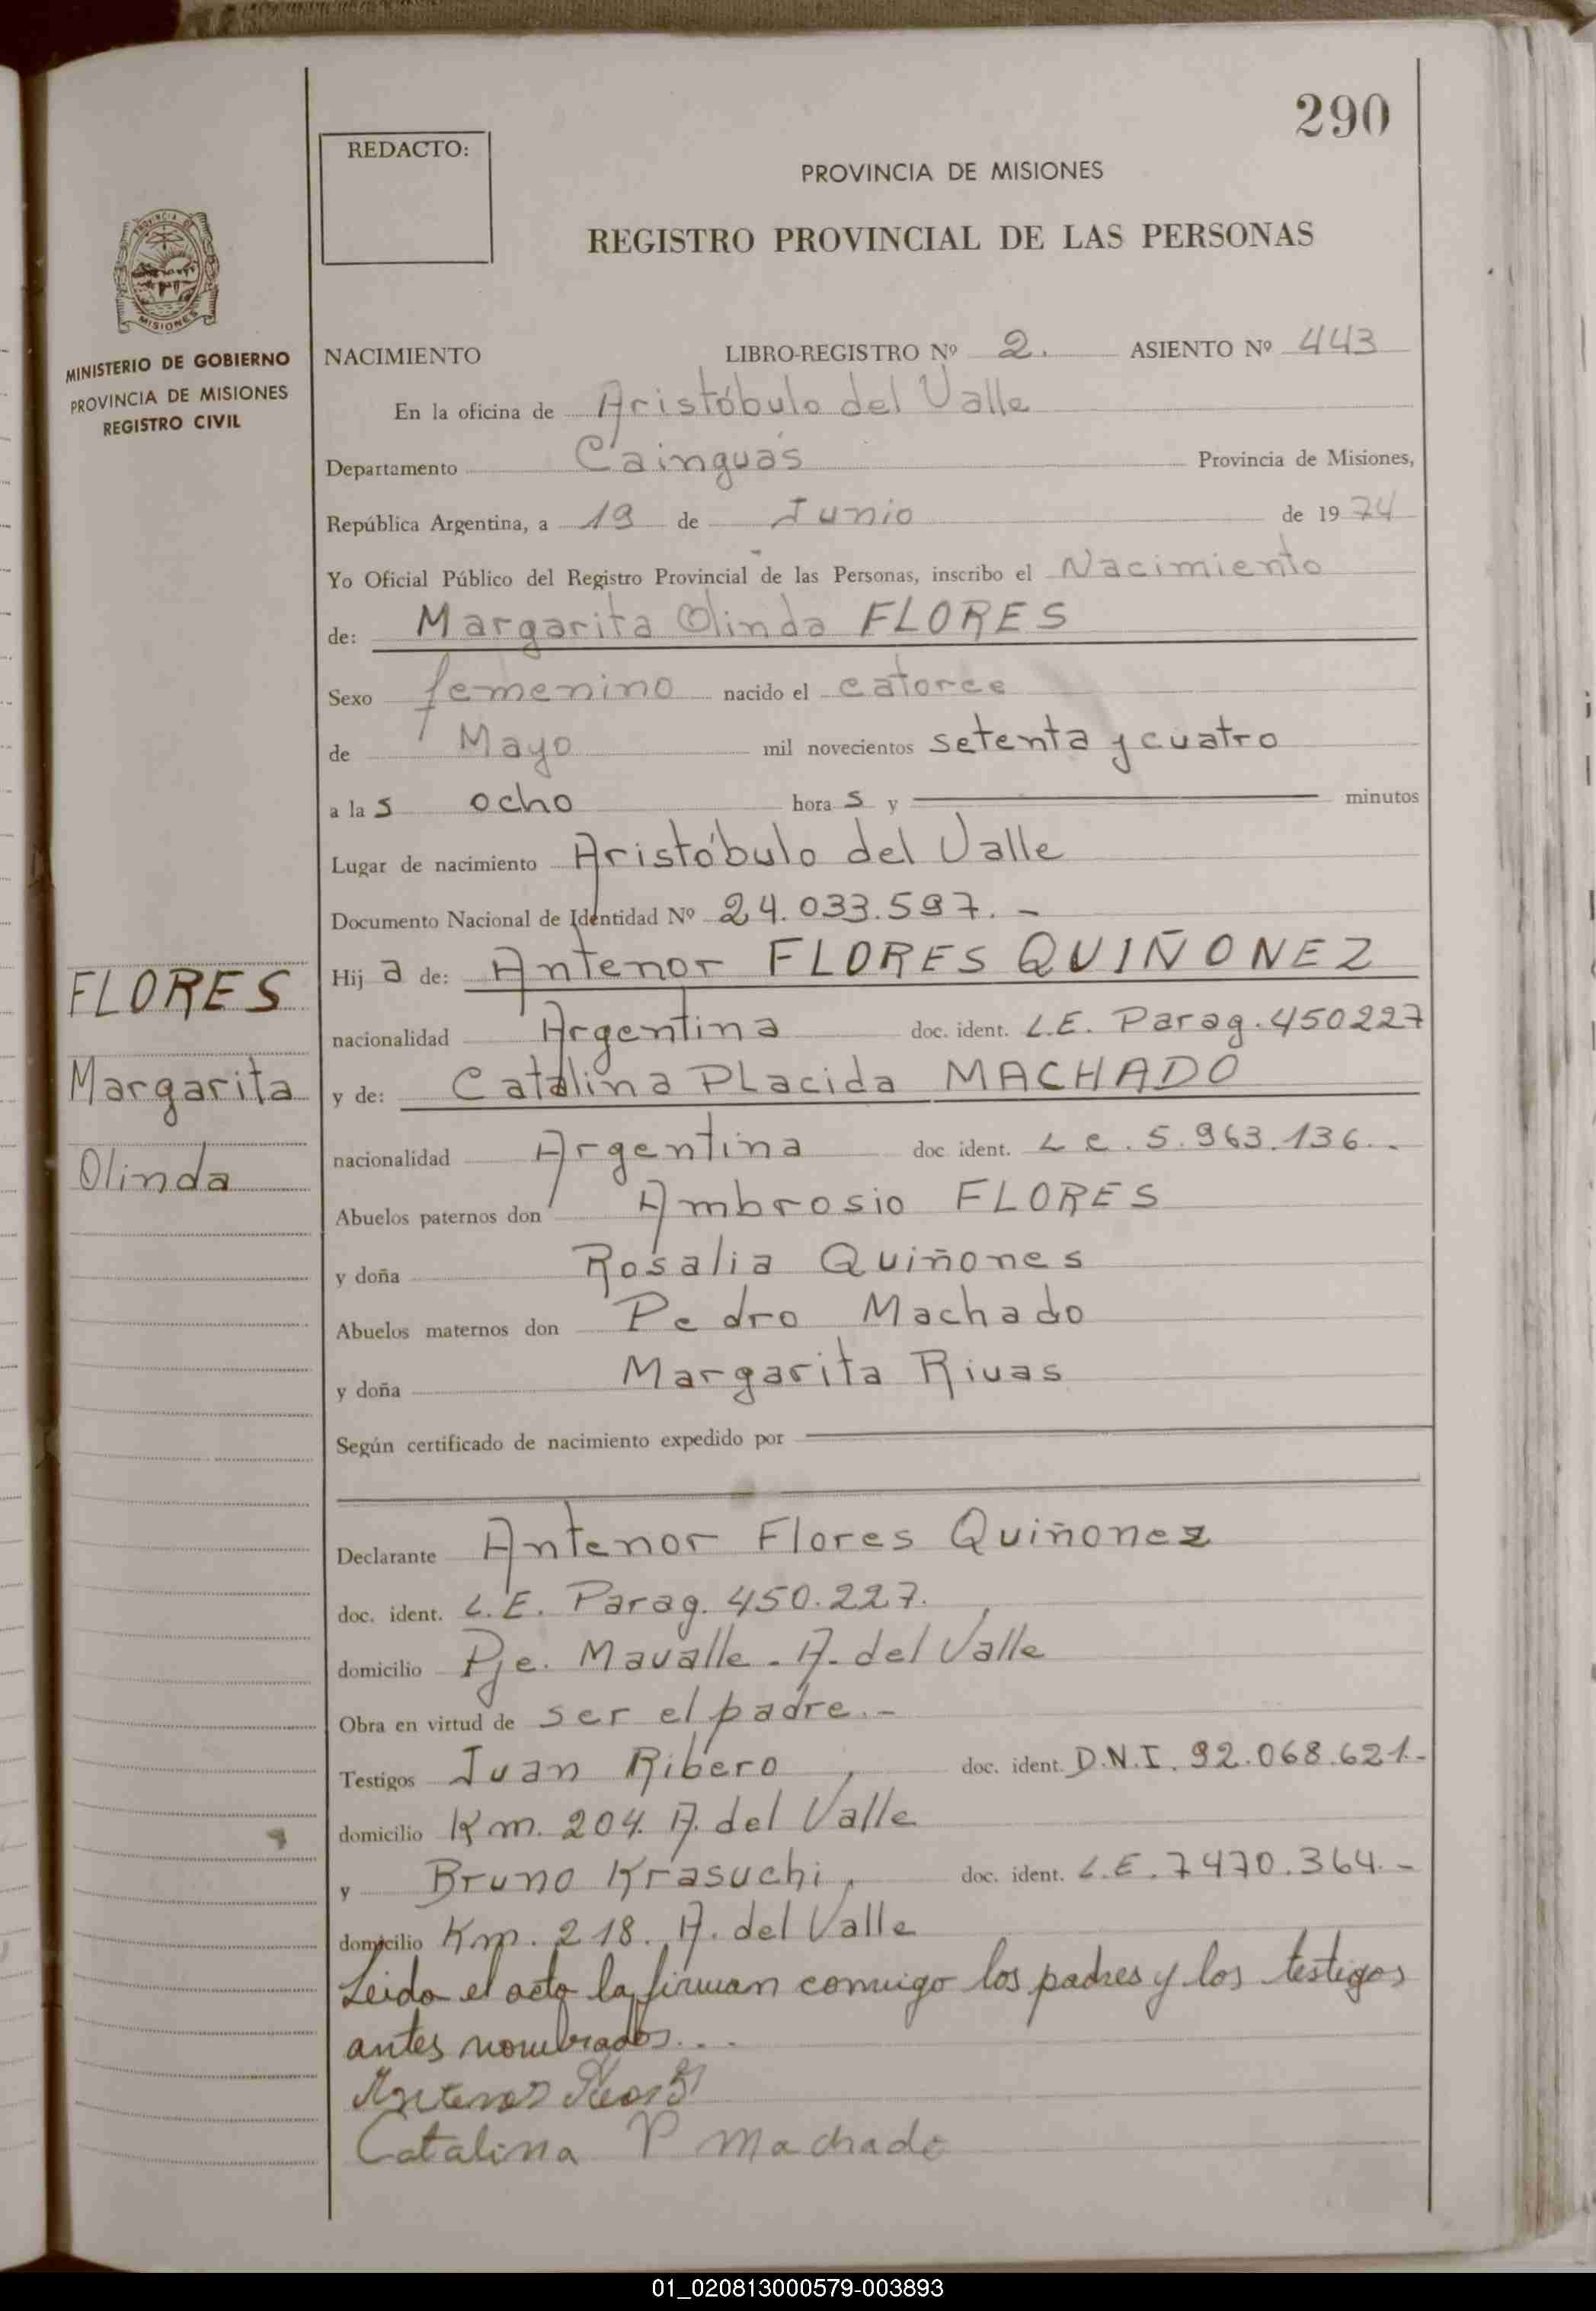 290
REDACTO:
PROVINCIA DE MISIONES
REGISTRO PROVINCIAL DE LAS PERSONAS
PROVINCIA DE
MISIONES
MINISTERIO DE GOBIERNO
PROVINCIA DE MISIONES
REGISTRO CIVIL
NACIMIENTO LIBRO-REGISTRO Nº 2. ASIENTO Nº 443
En la oficina de Aristóbulo del Valle
Departamento Cainguás Provincia de Misiones,
República Argentina, a 19 de Junio de 1974
Yo Oficial Público del Registro Provincial de las Personas, inscribo el Nacimiento
de: Margarita Olinda FLORES
Sexo femenino nacido el catorce
de Mayo mil novecientos setenta y cuatro
a las ocho horas y minutos
Lugar de nacimiento Aristóbulo del Valle
Documento Nacional de Identidad Nº 24.033.597.-
Hija de: Antenor FLORES QUIÑONEZ
nacionalidad Argentina doc. ident. L.E. Parag. 450227
y de: Catalina Placida MACHADO
nacionalidad Argentina doc. ident. L e. 5.963.136.-
Abuelos paternos don Ambrosio FLORES
y doña Rosalia Quiñones
Abuelos maternos don Pedro Machado
y doña Margarita Rivas
Según certificado de nacimiento expedido por
Declarante Antenor Flores Quiñonez
doc. ident. L.E. Parag. 450.227.
domicilio Pje. Mavalle - A. del Valle
Obra en virtud de ser el padre.-
Testigos Juan Ribero, doc. ident. D.N.I. 92.068.621.-
domicilio Km. 204. A. del Valle
y Bruno Krasuchi, doc. ident. L.E. 7470.364.-
domicilio Km. 218. A. del Valle
Leido el acta la firman conmigo los padres y los testigos
antes nombrados...
Antenor
Catalina P Machado
FLORES
Margarita
Olinda
01_020813000579-003893